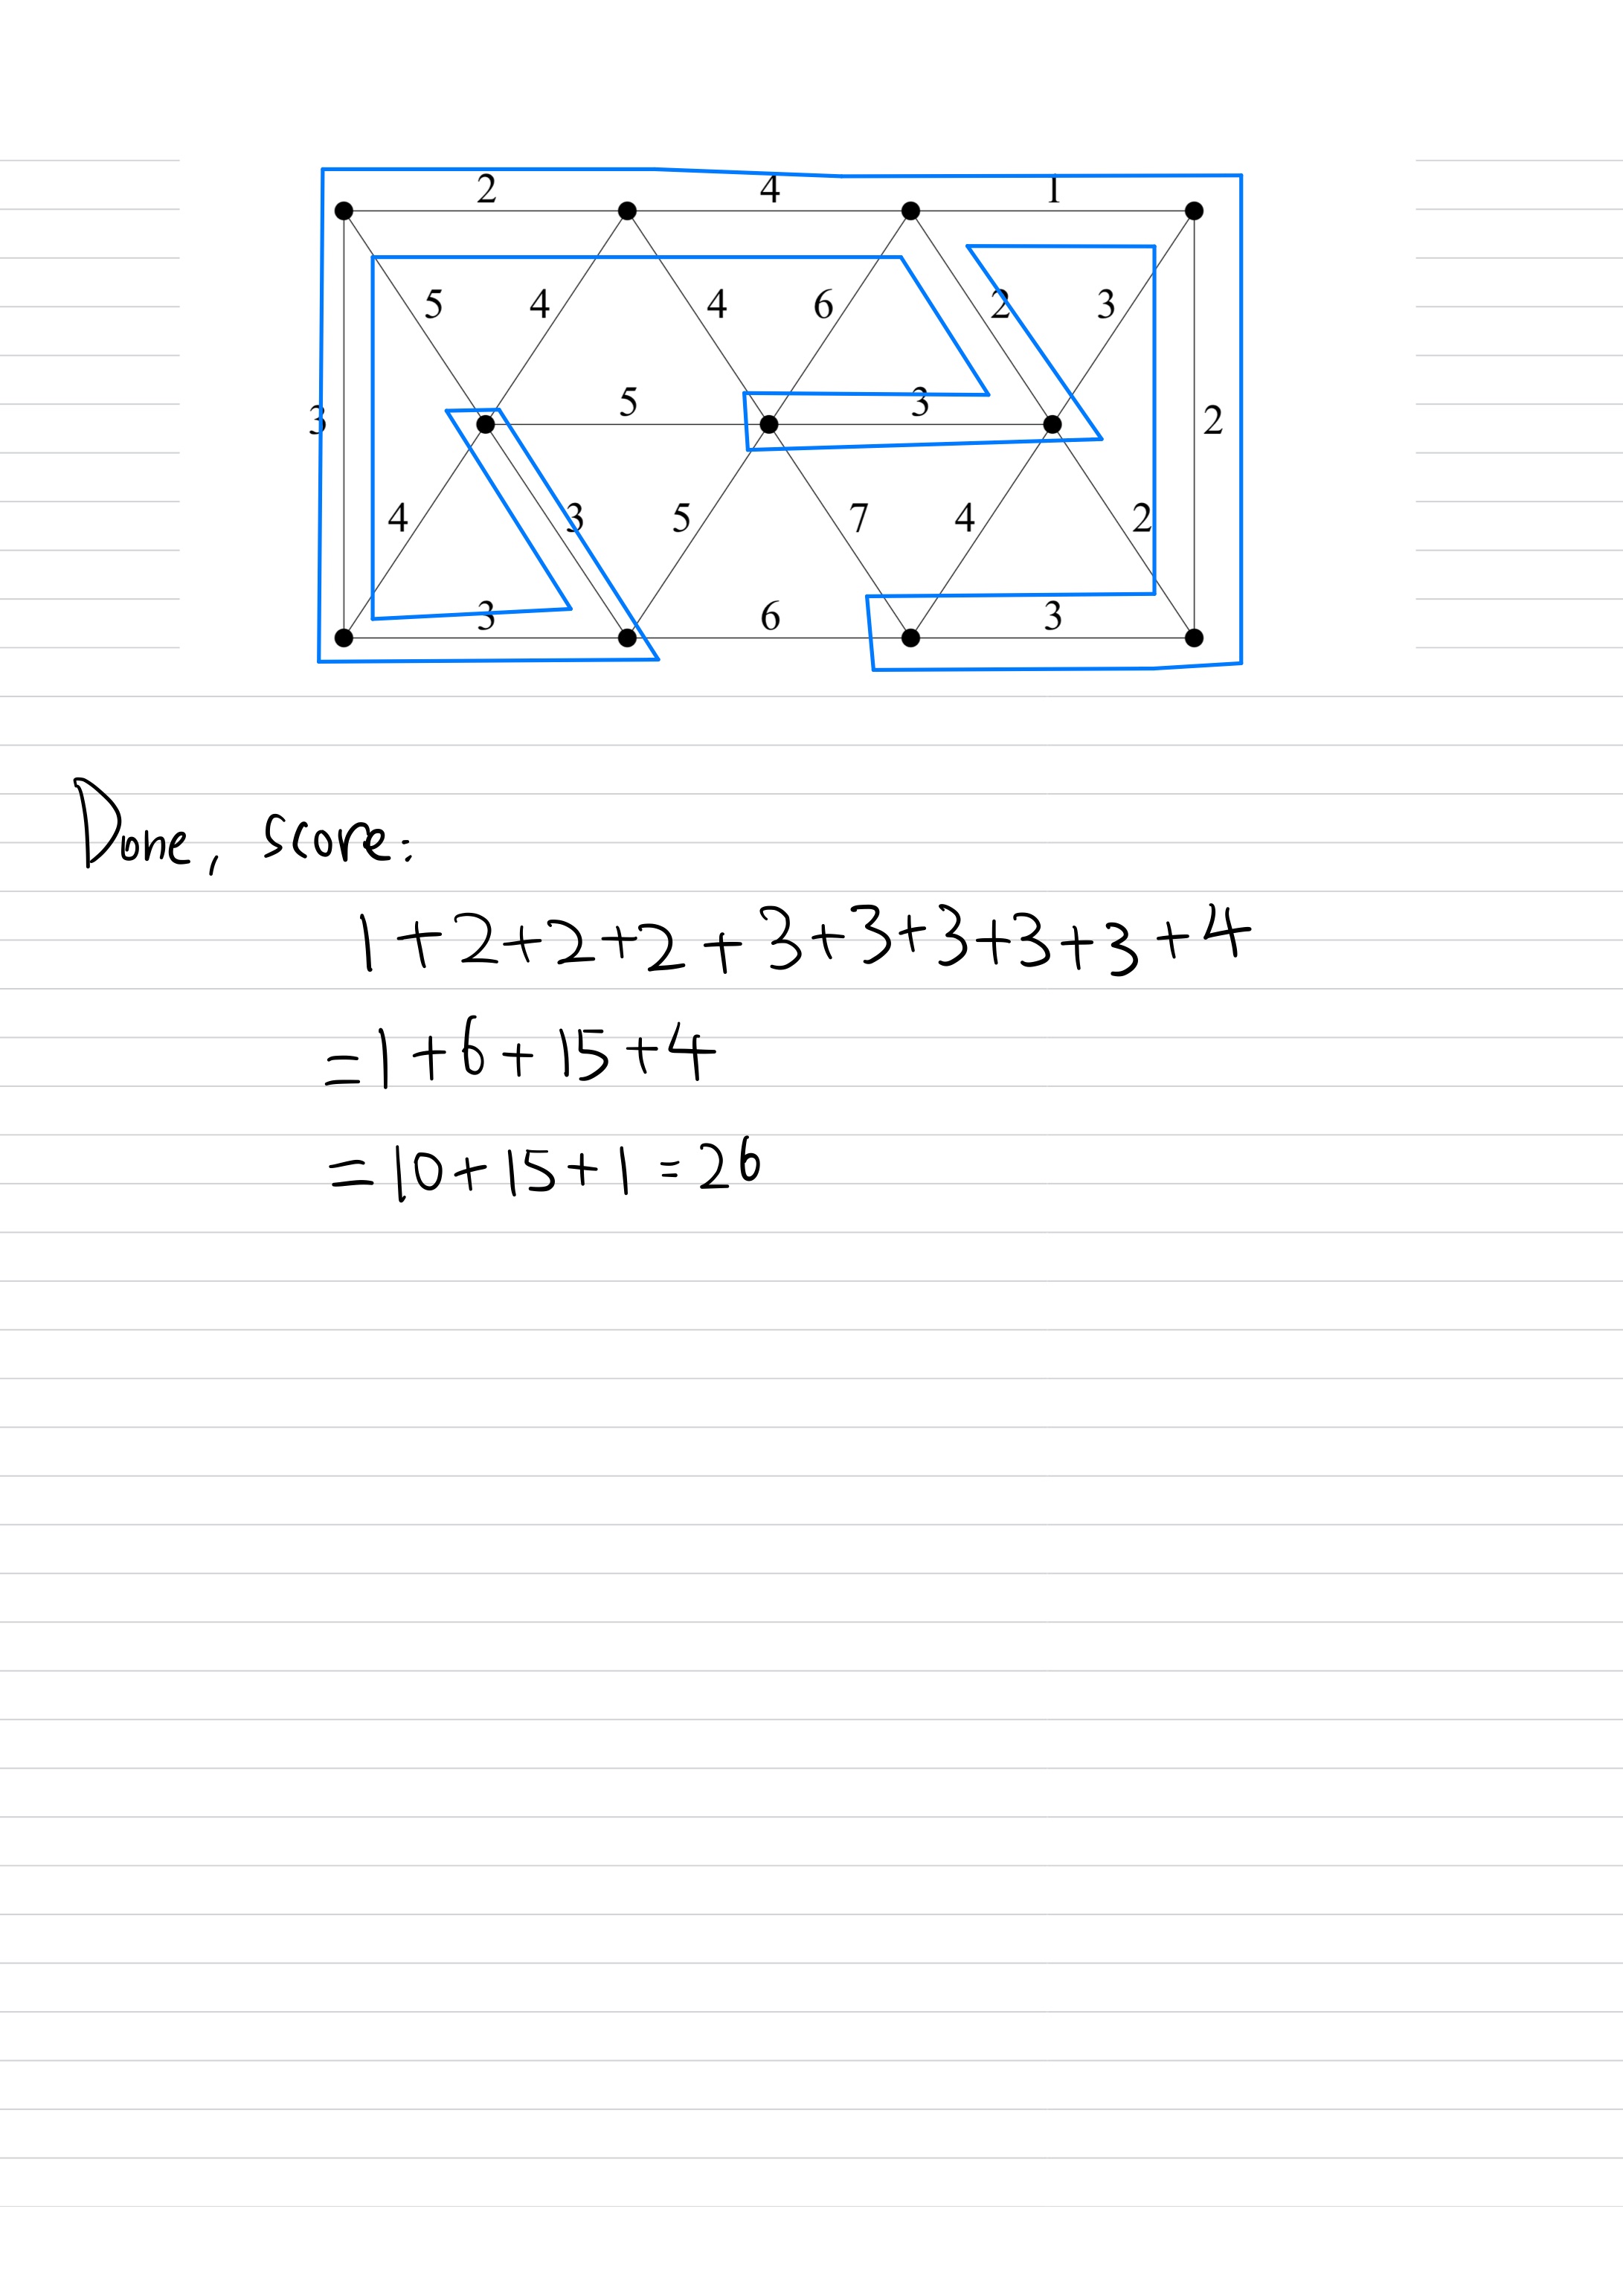 2 4 1
5 4 4 6 2 3
3 5 3 2
4 3 5 7 4 2
3 6 3
Done, score:
1+2+2+2+3+3+3+3+3+4
=1+6+15+4
=10+15+1=26